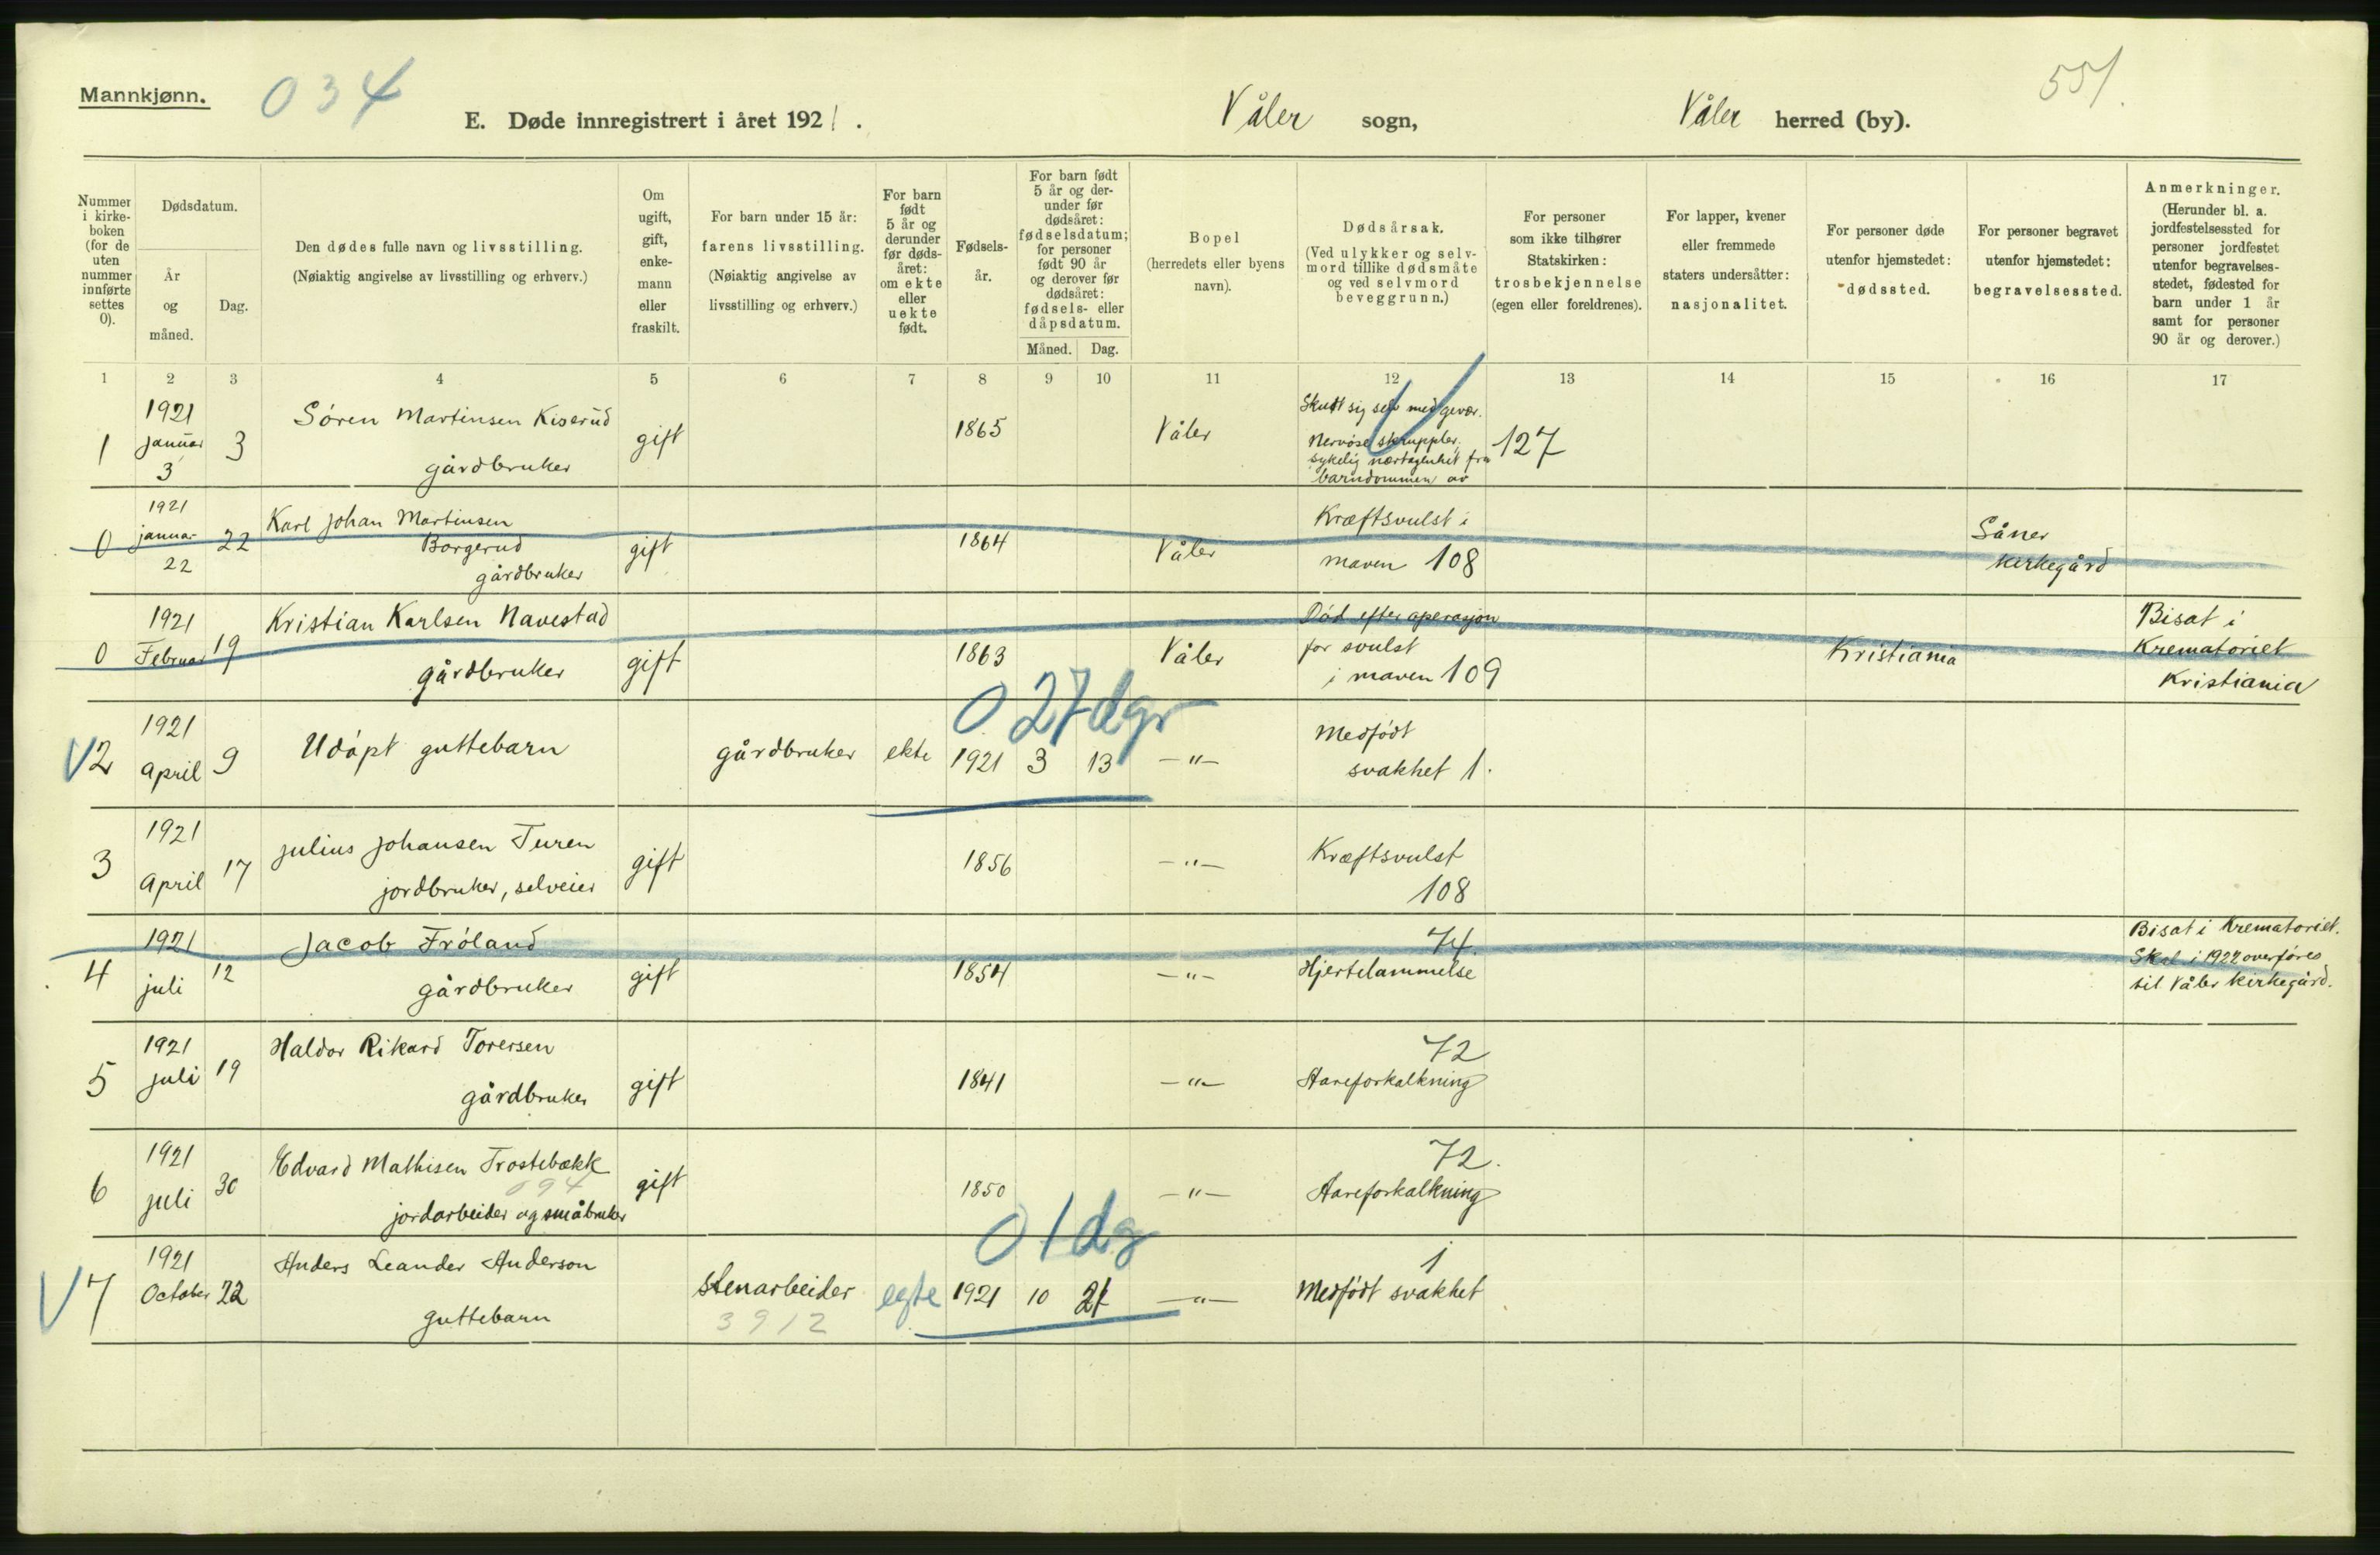 Mannkjønn.
034
551.
E. Døde innregistrert i året 1921.
Våler sogn,
Våler herred (by).
Nummer
i kirke-
boken
(for de
uten
nummer
innførte
settes
0).
Dødsdatum.
År
og
måned.
Dag.
Den dødes fulle navn og livsstilling.
(Nøiaktig angivelse av livsstilling og erhverv.)
Om
ugift,
gift,
enke-
mann
eller
fraskilt.
For barn under 15 år:
farens livsstilling.
(Nøiaktig angivelse av
livsstilling og erhverv.)
For barn
født
5 år og
derunder
før døds-
året:
om ekte
eller
uekte
født.
Fødsels-
år.
For barn født
5 år og der-
under før
dødsåret:
fødselsdatum;
for personer
født 90 år
og derover før
dødsåret:
fødsels- eller
dåpsdatum.
Måned. Dag.
Bopel
(herredets eller byens
navn).
Dødsårsak.
(Ved ulykker og selv-
mord tillike dødsmåte
og ved selvmord
beveggrunn.)
For personer
som ikke tilhører
Statskirken:
trosbekjennelse
(egen eller foreldrenes).
For lapper, kvener
eller fremmede
staters undersåtter:
nasjonalitet.
For personer døde
utenfor hjemstedet:
dødssted.
For personer begravet
utenfor hjemstedet:
begravelsessted.
Anmerkninger.
(Herunder bl. a.
jordfestelsessted for
personer jordfestet
utenfor begravelses-
stedet, fødested for
barn under 1 år
samt for personer
90 år og derover.)
1 2 3 4 5 6 7 8 9 10 11 12 13 14 15 16 17
1
1921
Januar
3
3
Søren Martinsen Kiserud
gårdbruker
gift
1865
Våler
Skudt sig selv med gevær.
Nervøse skrupler.
sykelig nærtagenhet fra
barndommen av
127
0
1921
januar
22
22
Karl Johan Martinsen
Borgerud
gårdbruker
gift
1864
Våler
Kræftsvulst i
maven 108
Såner
kirkegård
0
1921
Februar
19
Kristian Karlsen Navestad
gårdbruker
gift
1863
Våler
Død efter operasjon
for svulst
i maven 109
Kristiania
Bisat i
Krematoriet
Kristiania
0 27 dgr
V2
1921
April
9
Udøpt guttebarn
gårdbruker
ekte
1921 3 13
—"—
Medfødt
svakhet 1.
3
1921
April
17
Julius Johansen Turen
jordbruker, selveier
gift
1856
—"—
Kræftsvulst
108
4
1921
juli
12
Jacob Frøland
gårdbruker
gift
1854
—"—
74.
Hjertelammelse
Bisat i Krematoriet.
Skal i 1922 overføres
til Våler kirkegård.
5
1921
juli
19
Haldor Rikard Torersen
gårdbruker
gift
1841
—"—
72
Aareforkalkning
6
1921
juli
30
Edvard Mathisen Trostebækk
094
jordarbeider og småbruker
gift
1850
—"—
72.
Aareforkalkning
0 1 dg
V7
1921
October
22
Anders Leander Anderson
guttebarn
Stenarbeider
3912
egte
1921 10 21
—"—
1
Medfødt svakhet